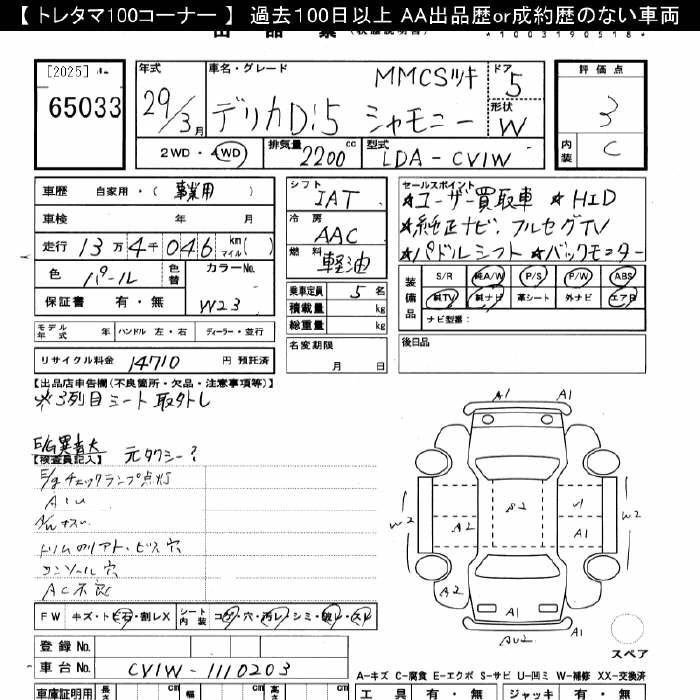 【 トレタマ100コーナー 】 過去100日以上 AA出品歴or成約歴のない車両
[2025]
65033
年式 29/3月
車名・グレード MMCSツキ
デリカD:5 シャモニー
ドア 5
形状 W
2WD ・ 4WD
排気量 2200 cc
型式 LDA-CV1W
評価点
3
内装 C
車歴 自家用・( 事業用 )
車検 年 月
走行 13万4千046 km マイル( )
色 パール 色替 カラーNo. W23
保証書 有・無
モデル年式 年 ハンドル 左・右 ディーラー・並行
リサイクル料金 14710 円 預託済
シフト IAT
冷房 AAC
燃料 軽油
乗車定員 5 名
積載量 kg
総重量 kg
名変期限
月 日
セールスポイント
★ユーザー買取車 ★HID
★純正ナビ、フルセグTV
★パドルシフト ★バックモニター
装備品 S/R 純A/W P/S P/W ABS
純TV 純ナビ 革シート 外ナビ エアB
ナビ型番:
後日品
【出品店申告欄(不良箇所・欠品・注意事項等)】
※3列目シート取外し
E/G異音大
【検査員記入】 元タクシー?
E/gチェックランプ点灯
A/Wキズ
トリムのリアト・ビス穴
コンソール穴
AC不良
FW キズ・トビ石・割レX シート内装 コゲ・穴・汚レ・シミ・破レ・スレ
登録No.
車台No. CV1W-1110203
A1 A1
W2 A2 S2 V1 A1 W2
A2 A1 A1
AU2
スペア
A-キズ C-腐食 E-エクボ S-サビ U-凹ミ W-補修 XX-交換済
車庫証明用 長さ cm 幅 cm cm
工具 有・無 ジャッキ 有・無